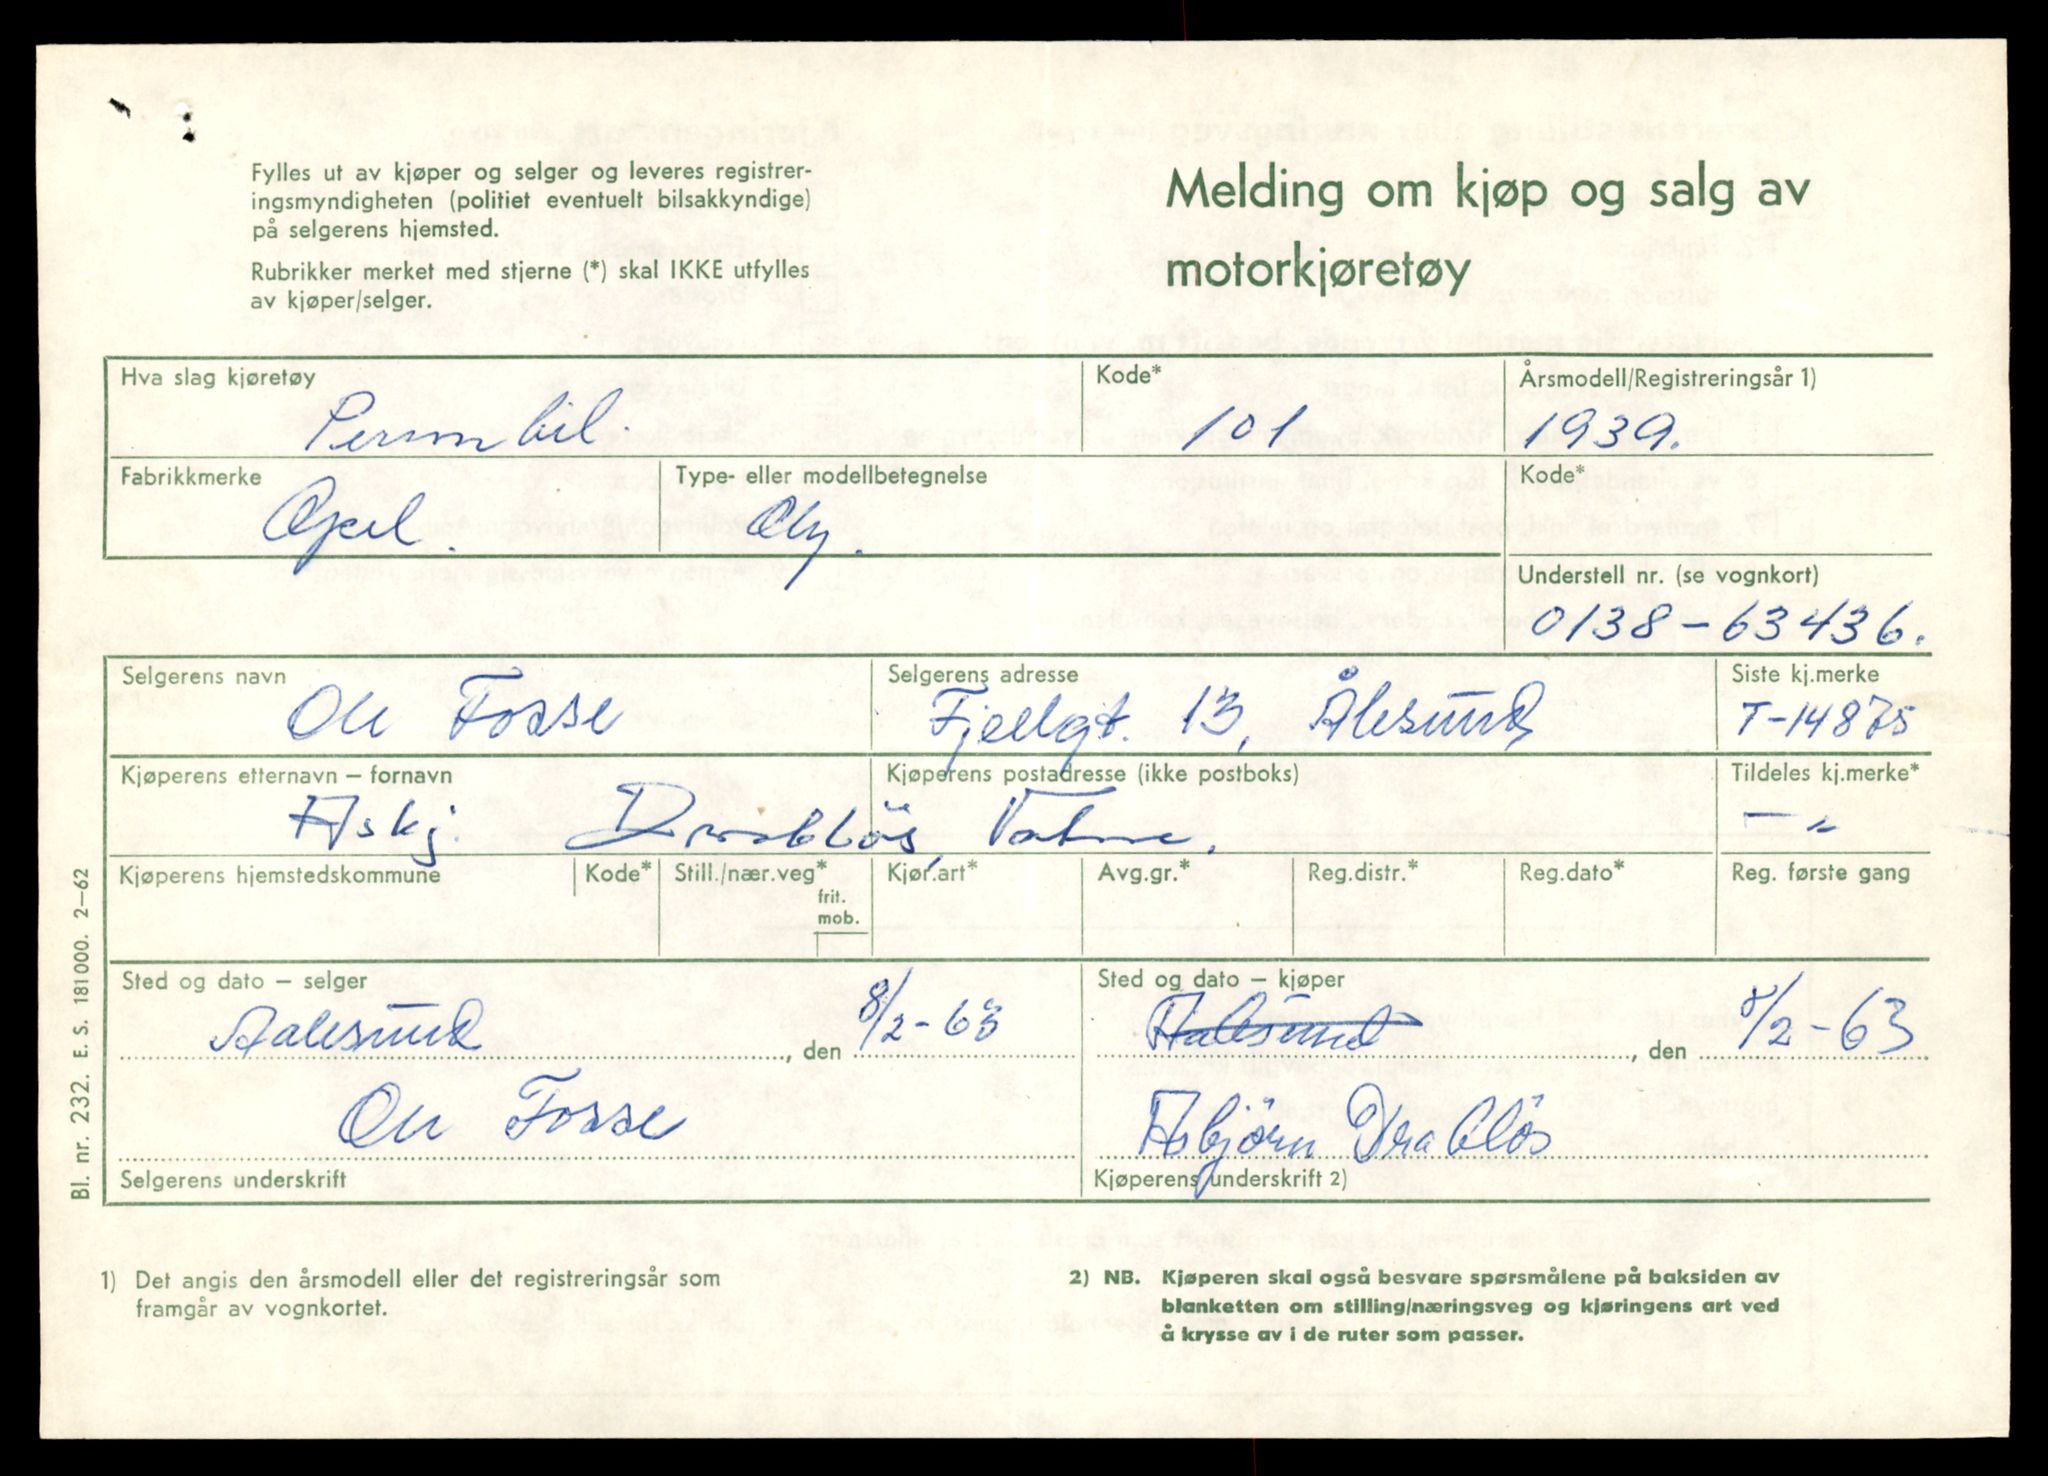 Fylles ut av kjøper og selger og leveres registrer-
ingsmyndigheten (politiet eventuelt bilsakkyndige)
på selgerens hjemsted.
Rubrikker merket med stjerne (*) skal IKKE utfylles
av kjøper/selger.
Melding om kjøp og salg av
motorkjøretøy
Hva slag kjøretøy
Personbil.
Kode*
101
Årsmodell/Registreringsår 1)
1939.
Fabrikkmerke
Opel.
Type- eller modellbetegnelse
Oly.
Kode*
Understell nr. (se vognkort)
0138-63436.
Selgerens navn
Ole Fosse
Selgerens adresse
Fjellgt. 13, Ålesund
Siste kj.merke
T-14875
Kjøperens etternavn – fornavn
Asbj. Drabløs,
Kjøperens postadresse (ikke postboks)
Vatne.
Tildeles kj.merke*
— „
Kjøperens hjemstedskommune
Kode*
Still./nær.veg*
frit.
mob.
Kjør.art*
Avg.gr.*
Reg.distr.*
Reg.dato*
Reg. første gang
Sted og dato – selger
Aalesund, den 8/2-63
Ole Fosse
Selgerens underskrift
Sted og dato – kjøper
Aalesund, den 8/2-63
Asbjörn Drabløs
Kjøperens underskrift 2)
Bl. nr. 232. E. S. 181000. 2–62
1) Det angis den årsmodell eller det registreringsår som
framgår av vognkortet.
2) NB. Kjøperen skal også besvare spørsmålene på baksiden av
blanketten om stilling/næringsveg og kjøringens art ved
å krysse av i de ruter som passer.